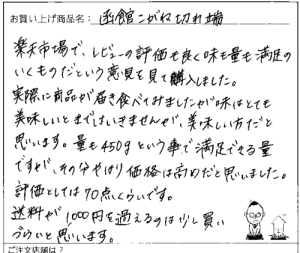 お買い上げ商品名： 函館こがね切れ端
楽天市場で、レビューの評価も良く味も量も満足の
いくものだという意見を見て購入しました。
実際に商品が届き食べてみましたが味はとても
美味しいとまではいきませんが、美味しい方だと
思います。量も450gという事で満足できる量
ですが、その分やはり価格は高めだと思いました。
評価としては70点くらいです。
送料が1,000円を過えるのは少し買い
づらいと思います。
ご注文店舗は？